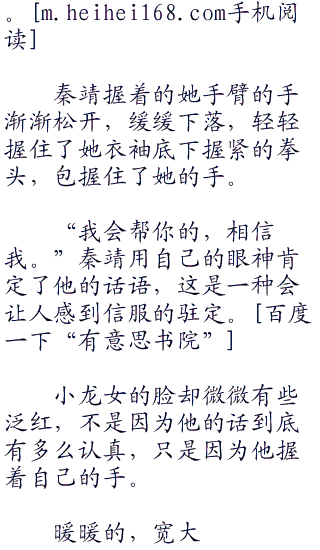 。[m.heihei168.com手机阅
读]
秦靖握着的她手臂的手
渐渐松开，缓缓下落，轻轻
握住了她衣袖底下握紧的拳
头，包握住了她的手。
“我会帮你的，相信
我。”秦靖用自己的眼神肯
定了他的话语，这是一种会
让人感到信服的驻定。[百度
一下“有意思书院”]
小龙女的脸却微微有些
泛红，不是因为他的话到底
有多么认真，只是因为他握
着自己的手。
暖暖的，宽大